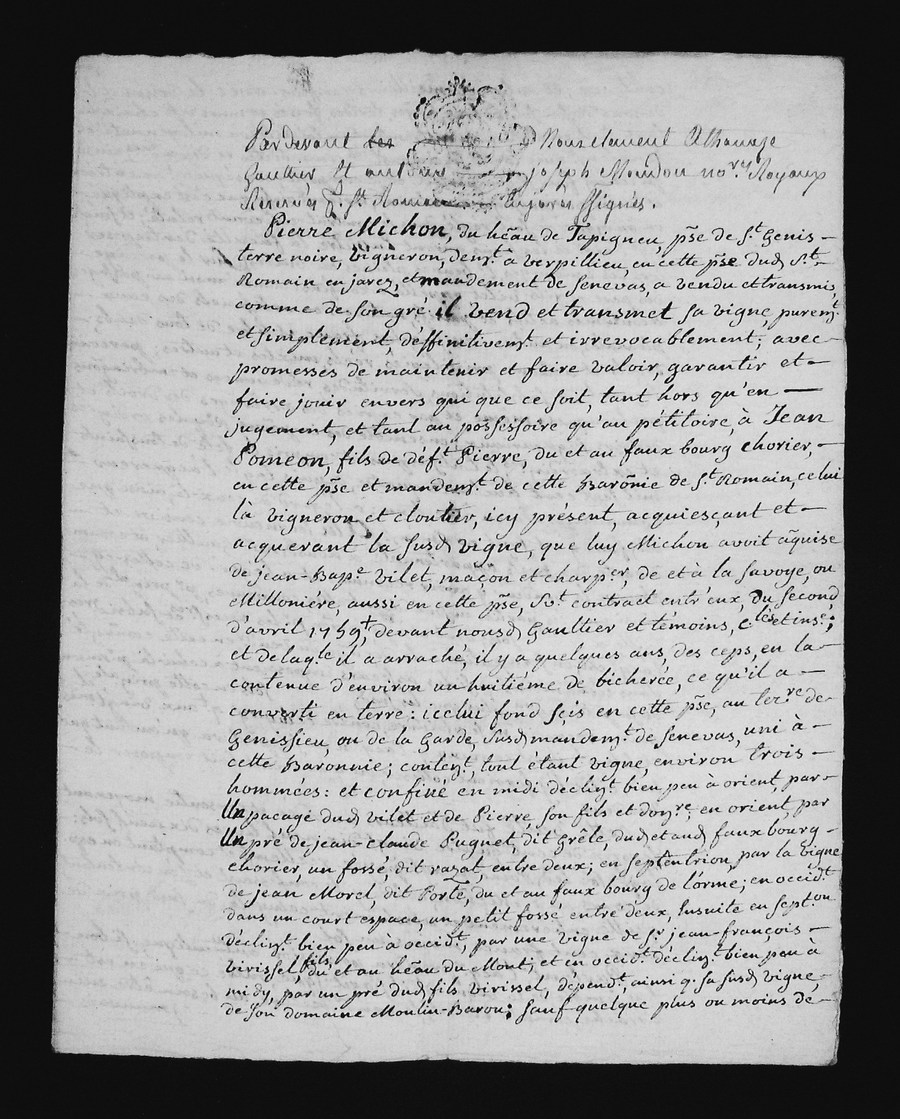 Pardevant les Nous clement Athanase
Gaultier Et antoine joseph Mondon no.rs Royaux
Reservés p.r S.t Romain Soussignés.
Pierre Michon, du hẽau de Tapigneu, pſse de S.t Genis –
terre noire, vigneron, dem.t a verpillieu, en cette pſse dud S.t
Romain en jarez, et mandement de Senevas, a vendu et transmis,
comme de son gré il vend et transmet sa vigne, purem.t
et simplement, déffinitivem.t et irrevocablement; avec –
promesses de maintenir et faire valoir, garantir et –
faire jouir envers qui que ce soit, tant hors qu'en —
jugement, et tant au possessoire qu'au pétitoire, à Jean
Pomeon, fils de déf.t Pierre, du et au faux bourg chorier, –
en cette pſse et mandem.t de cette Barõnie de S.t Romain, celui
là vigneron et cloutier, icy présent, acquiesçant et –
acquerant la susd vigne, que luy Michon avoit aq̃uise
de jean-Bap.e vilet, maçon et charp.er, de et à la Savoye, ou
Millonière, aussi en cette pſse, Sv.t contract entr'eux, du second
d'avril 1759, devant nousd Gaultier et témoins, c.lé et ins.é;
et de laq.le il a arraché, il y a quelques ans, des ceps, en la –
contenue d'environ un huitiéme de bicherée, ce qu'il a –
converti en terre: icelui fond scis en cette pſse, au ter.re de –
Genissieu, ou de la Garde, susd mandem.t de Senevas, uni à –
cette Baronnie; conten.t, tout étant vigne, environ trois –
hommées: et confiné en midi déclin.t bien peu à orient, par –
Un pacage dud vilet et de Pierre, son fils et don.re; en orient, par
Un pré de jean-claude Puguet, dit Grêle, dud et aud faux bourg –
chorier, un fossé dit razat, entre deux; en septentrion, par la vigne
de jean Morel, dit Porte, du et au faux bourg de l'orme; en occid.t
dans un court espace, un petit fossé entre deux, Ensuite en sept.on
déclin.t bien peu à occid.t, par une vigne de S.r jean-françois –
virissel, fils, du et au hẽau du Mont; et en occid.t déclin.t bien peu à
midy, par un pré dud fils virissel, dépend.t, ainsi q. sa susd vigne, –
de son domaine Moulin-Baron; sauf quelque plus ou moins de –